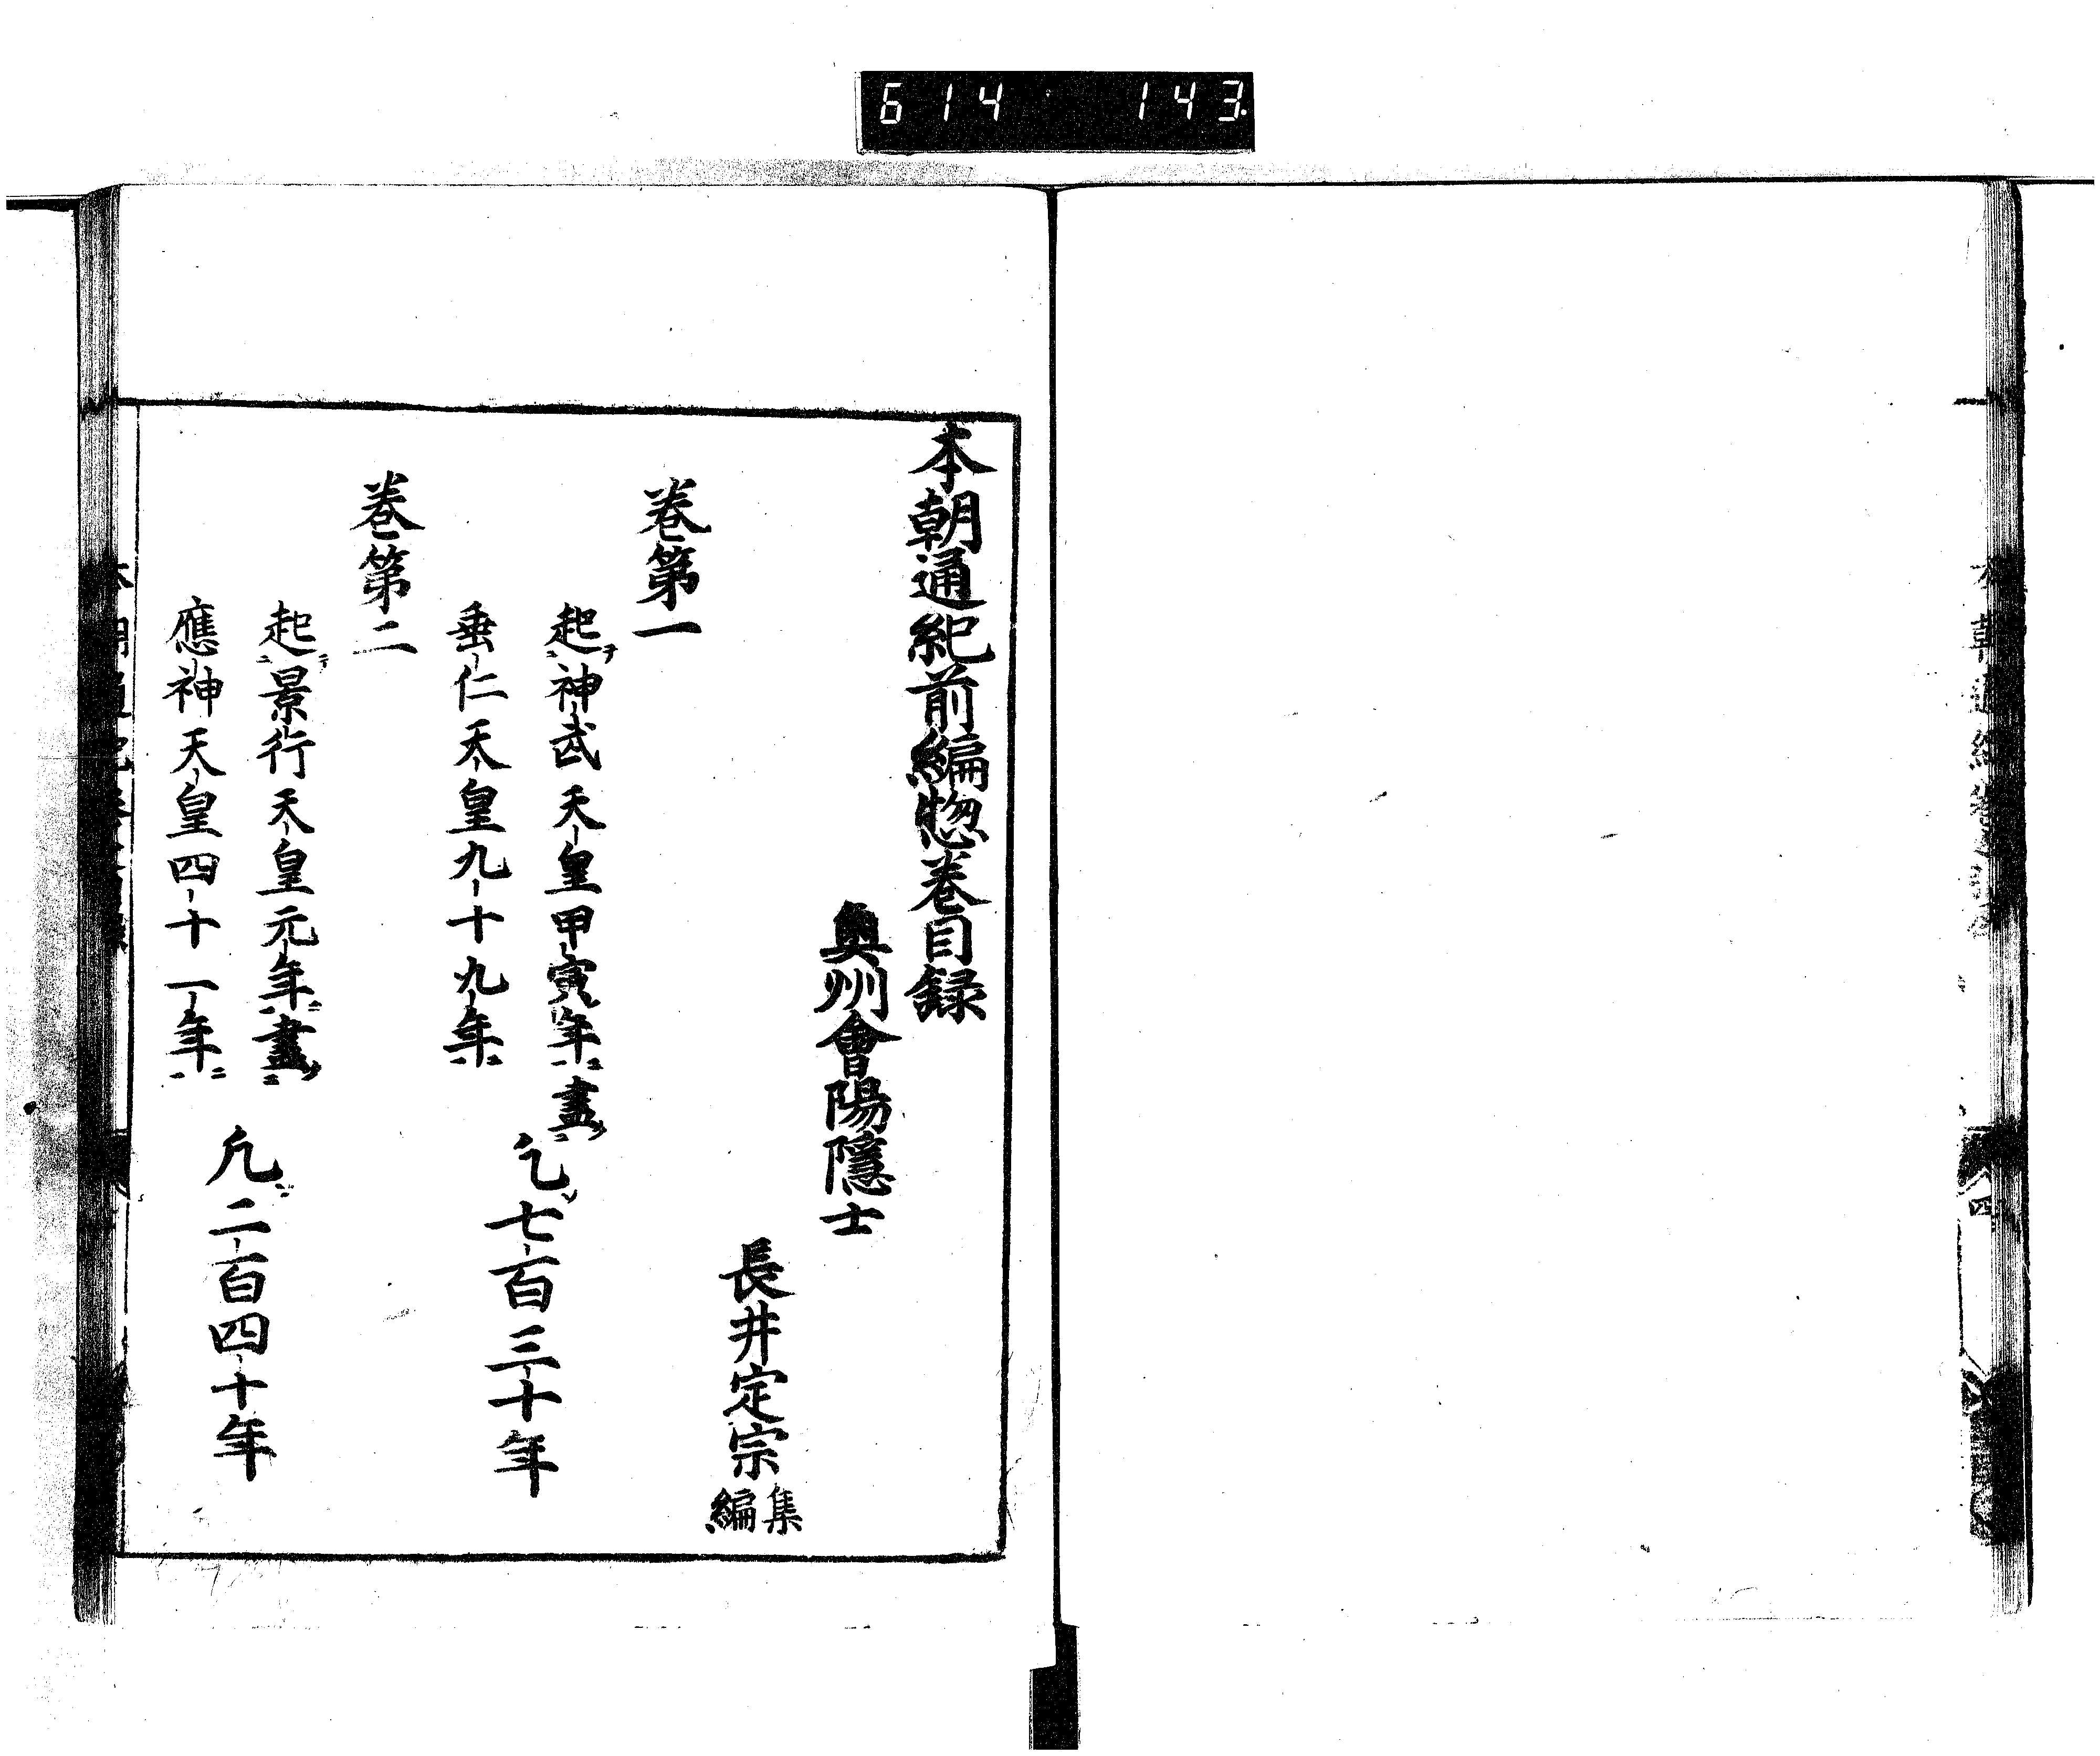 614 143
本朝通紀前編惣巻目録
奥州會陽隱士
長井定宗編集
巻第一
起テ神武天皇甲寅年ニ盡ツ
垂仁天皇九十九年ニ
凡ソ七百三十年
巻第二
起テ景行天皇元年ニ盡ツ
應神天皇四十一年ニ
凡二百四十年